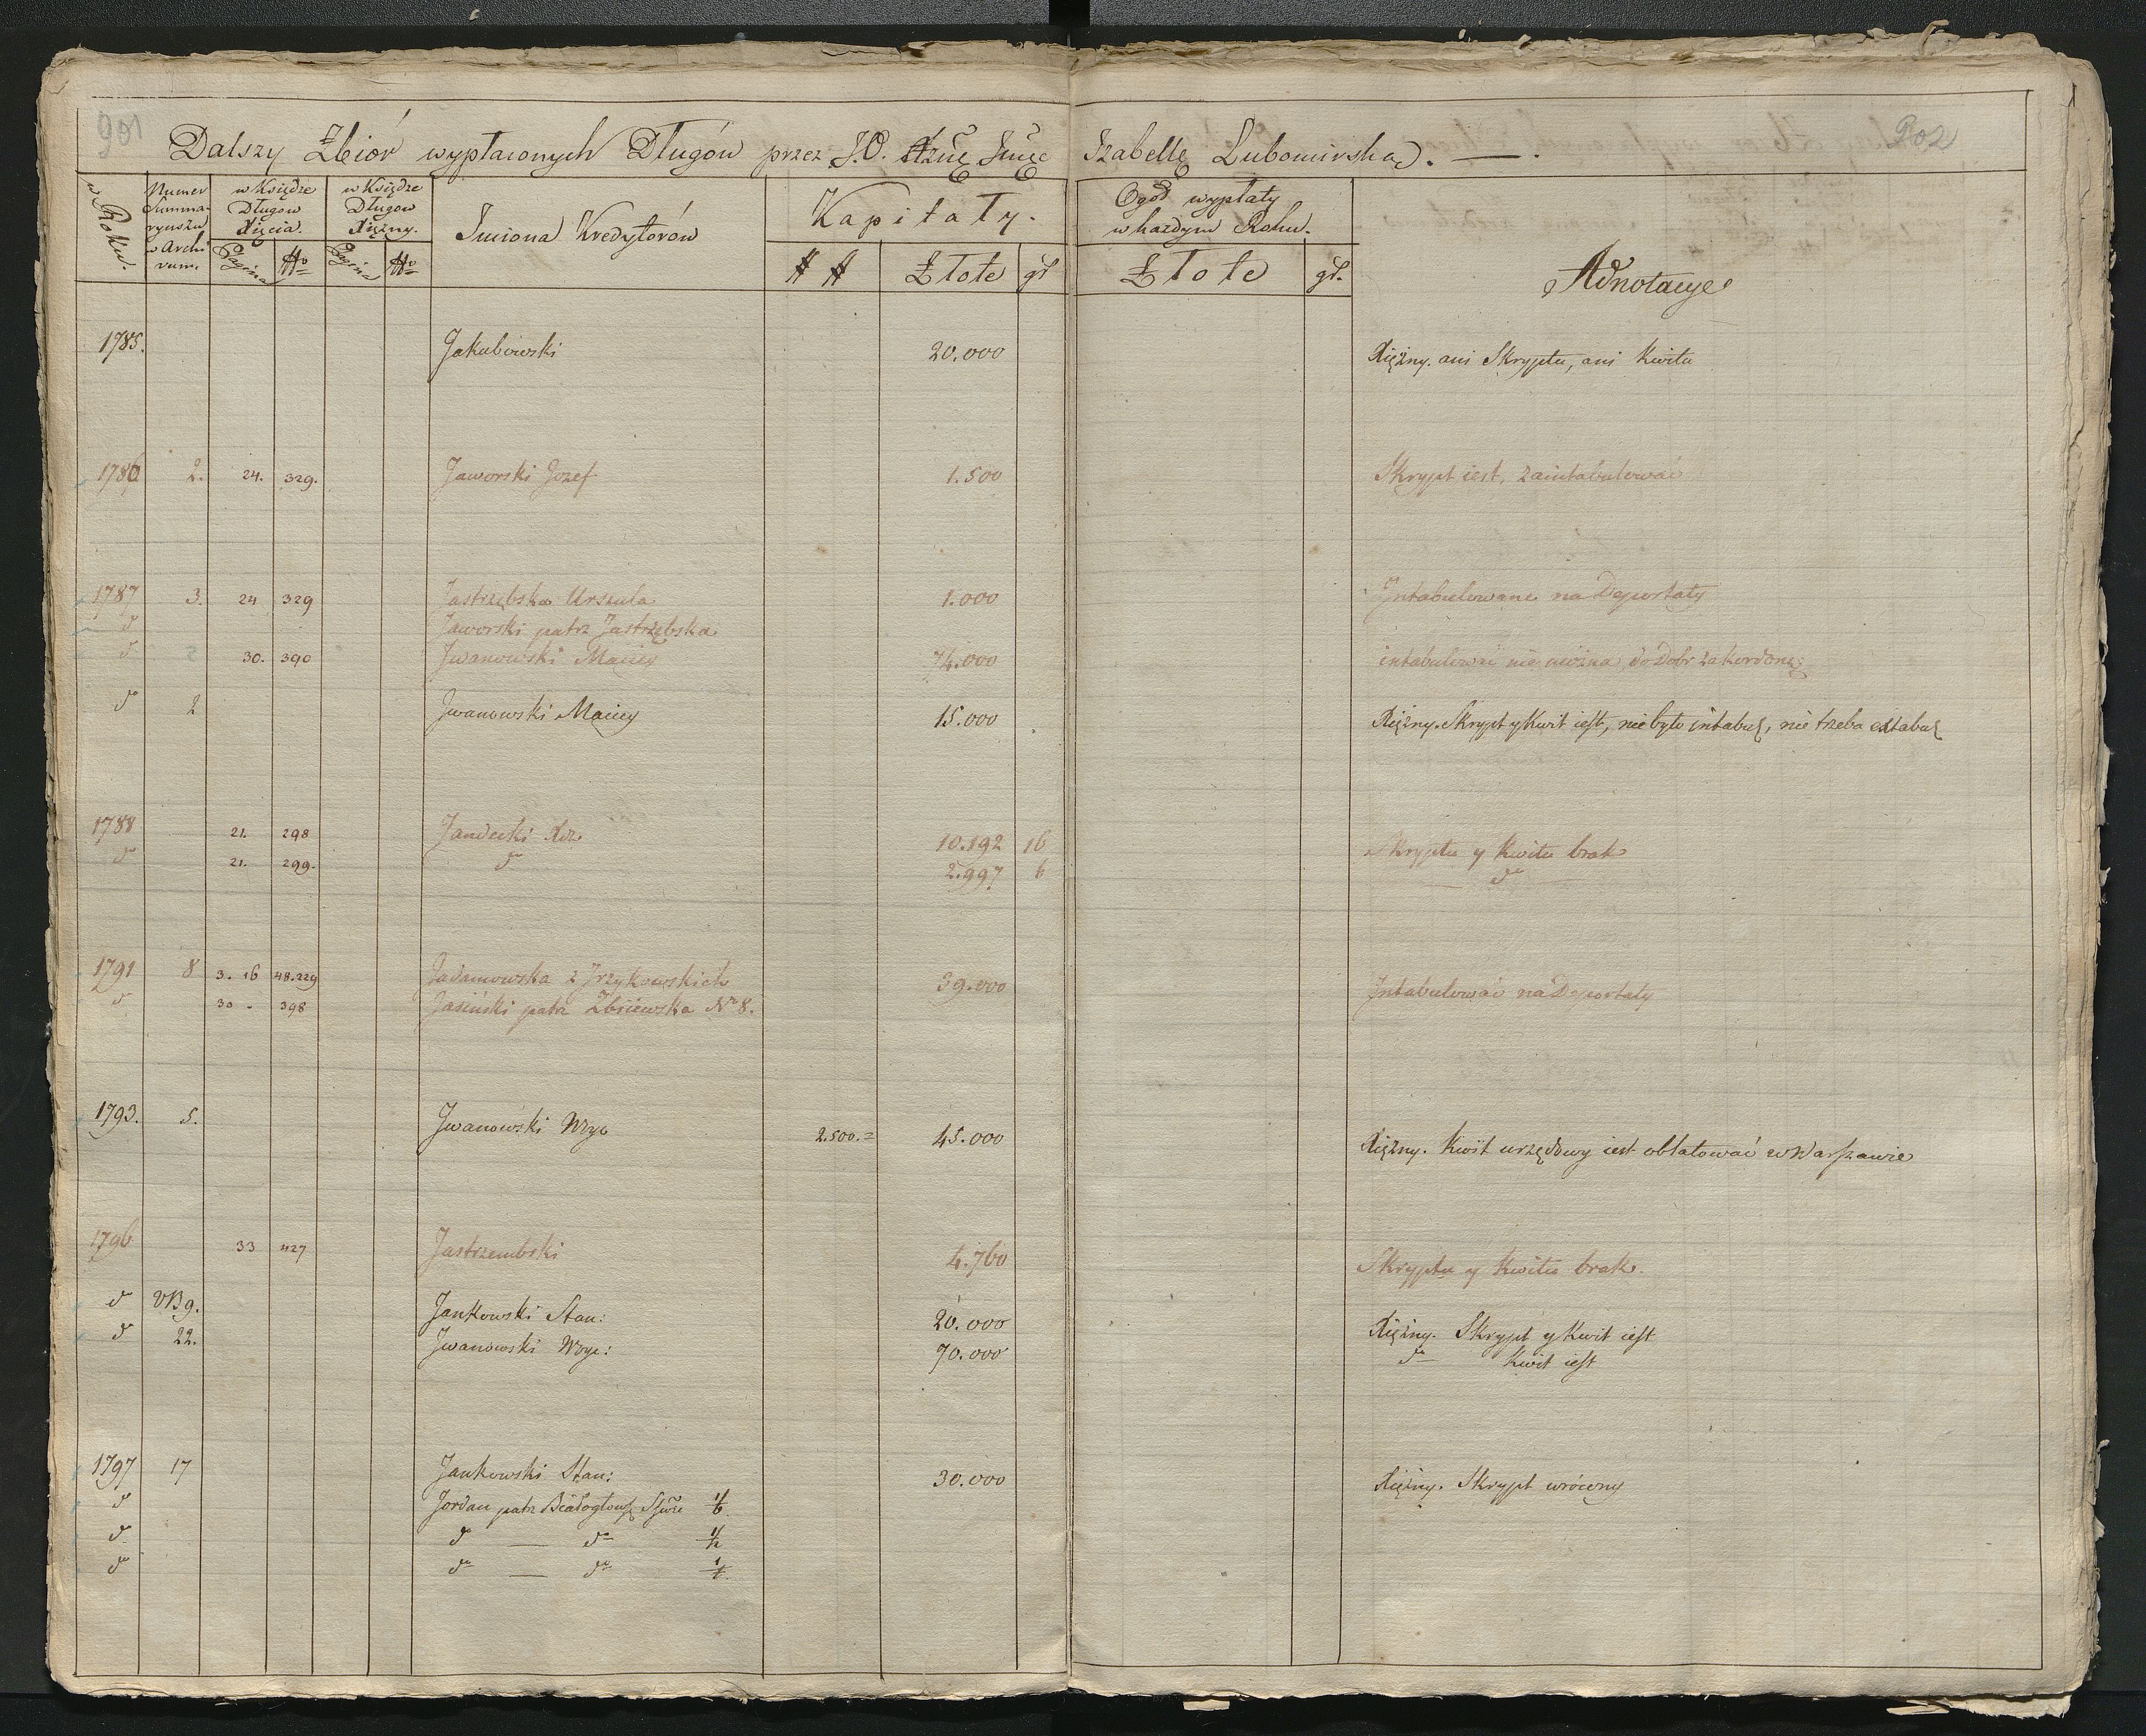 901
902
Dalszy Zbiór wypłaconych Długów przez J.O. Xżnę Jmię Izabellę Lubomirską.
w Roku.
Numer Summaryuszu w Archivum.
w Księdze Długów Xięcia.
Pagina No
w Księdze Długow Xiężny.
Pagina No
Imiona Kredytorów
Kapitały.
## Złote gr
Ogół wypłaty w każdym Roku.
Złote gr.
Adnotacye
1785. Jakubowski 20.000 Xiężny. ani Skryptu, ani Kwitu
1786 2. 24. 329. Jaworski Jozef 1.500 Skrypt iest, zaintabulować
1787 3. 24 329 Jastrzębska Urszula 1.000 Intabulowane na Deportaty
d Jaworski patrz Jastrzębska
d 2 30. 390 Jwanowski Maciey 74.000 intabulować nie można do Dobr zakordoną
d 2 Jwanowski Maciey 15.000 Xiężny. Skrypt y Kwit iest, nie było intabul, nie trzeba extabul
1788 21. 298 Jandecki Xdz 10.192 16 Skryptu y Kwitu brak
d 21. 299. do 2.997 6 do
1791 8 3. 16 48.229 Jadamowska z Jrzykowskich 39.000 Intabulować na Deportaty
d 30 - 398 Jasiński patrz Zbiiewska No 8.
1793. 5. Jwanowski Woye 2.500.= 45.000 Xiężny. Kwit urzędowy iest oblatować w Warszawie
1796 33 427 Jastrzembski 4.760 Skryptu y Kwitu brak.
d VB9. Jankowski Stan: 20.000 Xiężny. Skrypt y Kwit iest
d 22. Jwanowski Woye: 70.000 do Kwit iest
1797 17 Jankowski Stan: 30.000 Xiężny. Skrypt wrócony
d Jordan patrz Białogłows
d d — do
d do — do